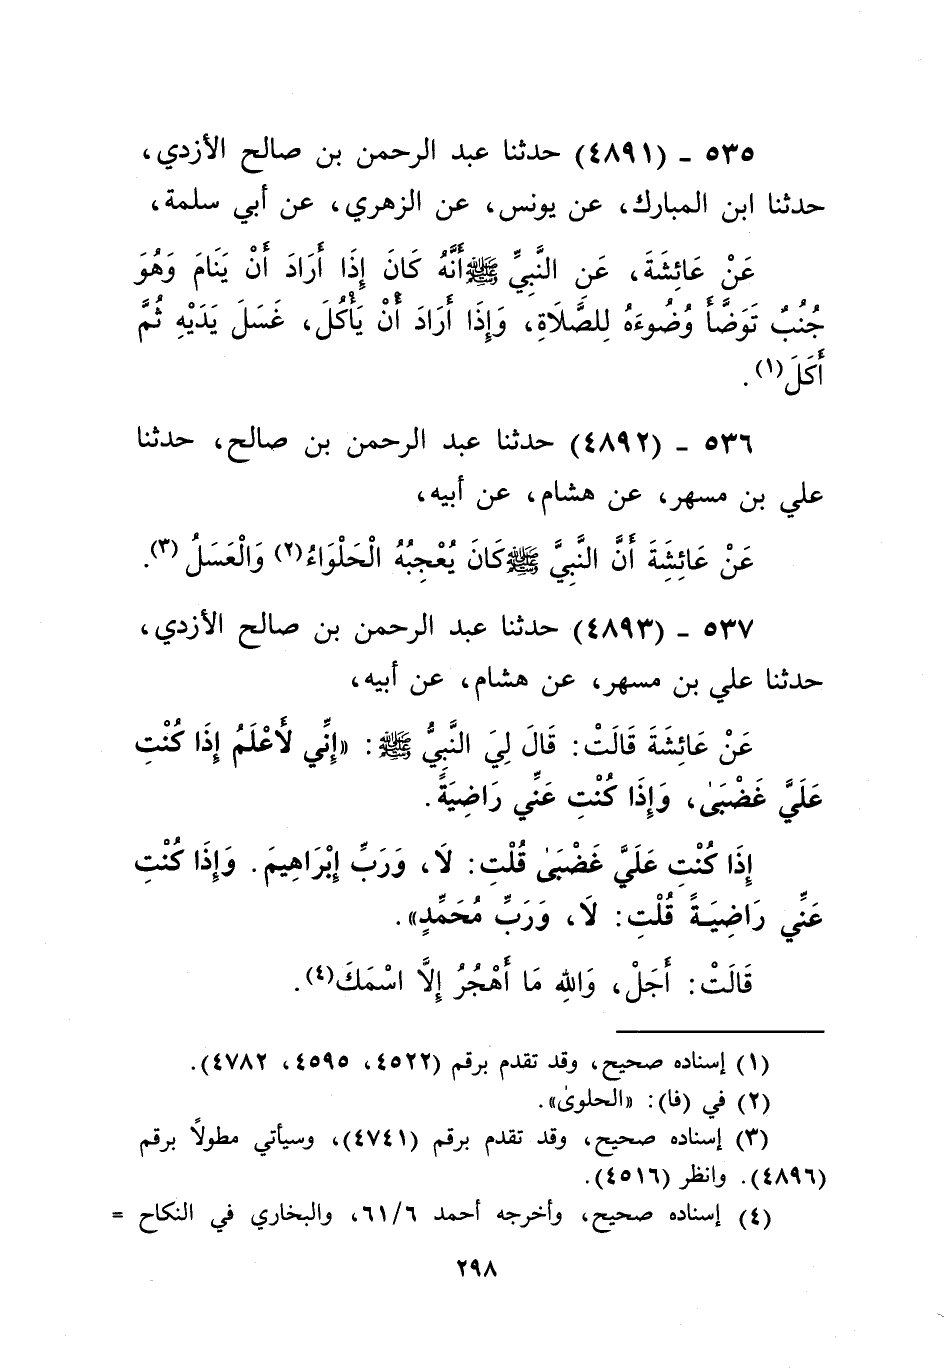 ٥٣٥ - (٤٨٩١) حدثنا عبد الرحمن بن صالح الأزدي،
حدثنا ابن المبارك، عن يونس، عن الزهري، عن أبي سلمة،
عَنْ عَائِشَةَ، عَنِ النَّبِيِّ ﷺ أَنَّهُ كَانَ إِذَا أَرَادَ أَنْ يَنَامَ وَهُوَ
جُنُبٌ تَوَضَّأَ وُضُوءَهُ لِلصَّلَاةِ، وَإِذَا أَرَادَ أَنْ يَأْكُلَ، غَسَلَ يَدَيْهِ ثُمَّ
أَكَلَ(١).
٥٣٦ - (٤٨٩٢) حدثنا عبد الرحمن بن صالح، حدثنا
علي بن مسهر، عن هشام، عن أبيه،
عَنْ عَائِشَةَ أَنَّ النَّبِيَّ ﷺ كَانَ يُعْجِبُهُ الْحَلْوَاءُ(٢) وَالْعَسَلُ(٣).
٥٣٧ - (٤٨٩٣) حدثنا عبد الرحمن بن صالح الأزدي،
حدثنا علي بن مسهر، عن هشام، عن أبيه،
عَنْ عَائِشَةَ قَالَتْ: قَالَ لِيَ النَّبِيُّ ﷺ: «إِنِّي لَأَعْلَمُ إِذَا كُنْتِ
عَلَيَّ غَضْبَىٰ، وَإِذَا كُنْتِ عَنِّي رَاضِيَةً.
إِذَا كُنْتِ عَلَيَّ غَضْبَىٰ قُلْتِ: لَا، وَرَبِّ إِبْرَاهِيمَ. وَإِذَا كُنْتِ
عَنِّي رَاضِيَةً قُلْتِ: لَا، وَرَبِّ مُحَمَّدٍ».
قَالَتْ: أَجَلْ، وَاللهِ مَا أَهْجُرُ إِلَّا اسْمَكَ(٤).
(١) إسناده صحيح، وقد تقدم برقم (٤٥٢٢، ٤٥٩٥، ٤٧٨٢).
(٢) في (فا): «الحلوىٰ».
(٣) إسناده صحيح، وقد تقدم برقم (٤٧٤١)، وسيأتي مطولاً برقم
(٤٨٩٦). وانظر (٤٥١٦).
(٤) إسناده صحيح، وأخرجه أحمد ٦١/٦، والبخاري في النكاح =
٢٩٨